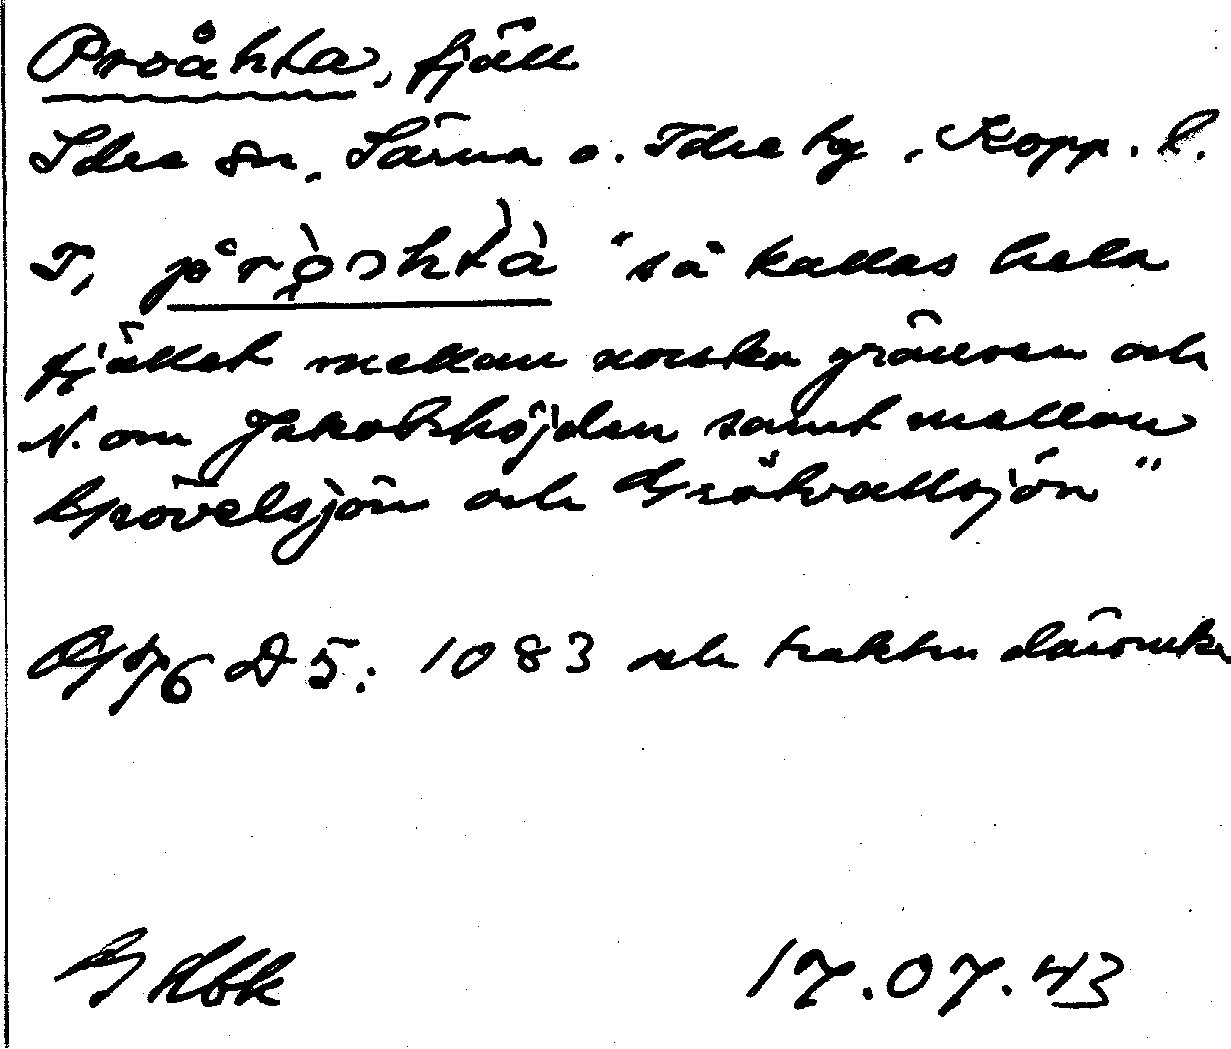 Proåhta, fjäll
Idre sn, Särna o. Idre tg, Kopp. l.
"så kallas hela
fjället mellan norska gränsen och
N. om Jakobshöjden samt mellan
Grövelsjön och Grötvallsjön"
D5: 1083 och trakten däromkr
17.07.43